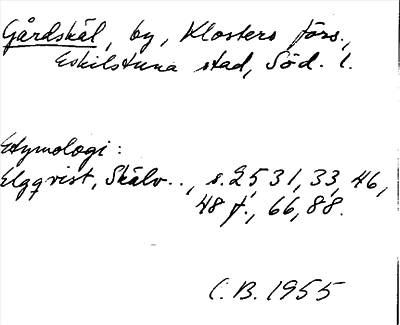 Gårdskäl, by, Klosters förs.,
Eskilstuna stad, Söd. l.
Etymologi:
Elgqvist, Skälv.., s. 25, 31, 33, 46,
48 f., 66, 88.
C.B. 1955